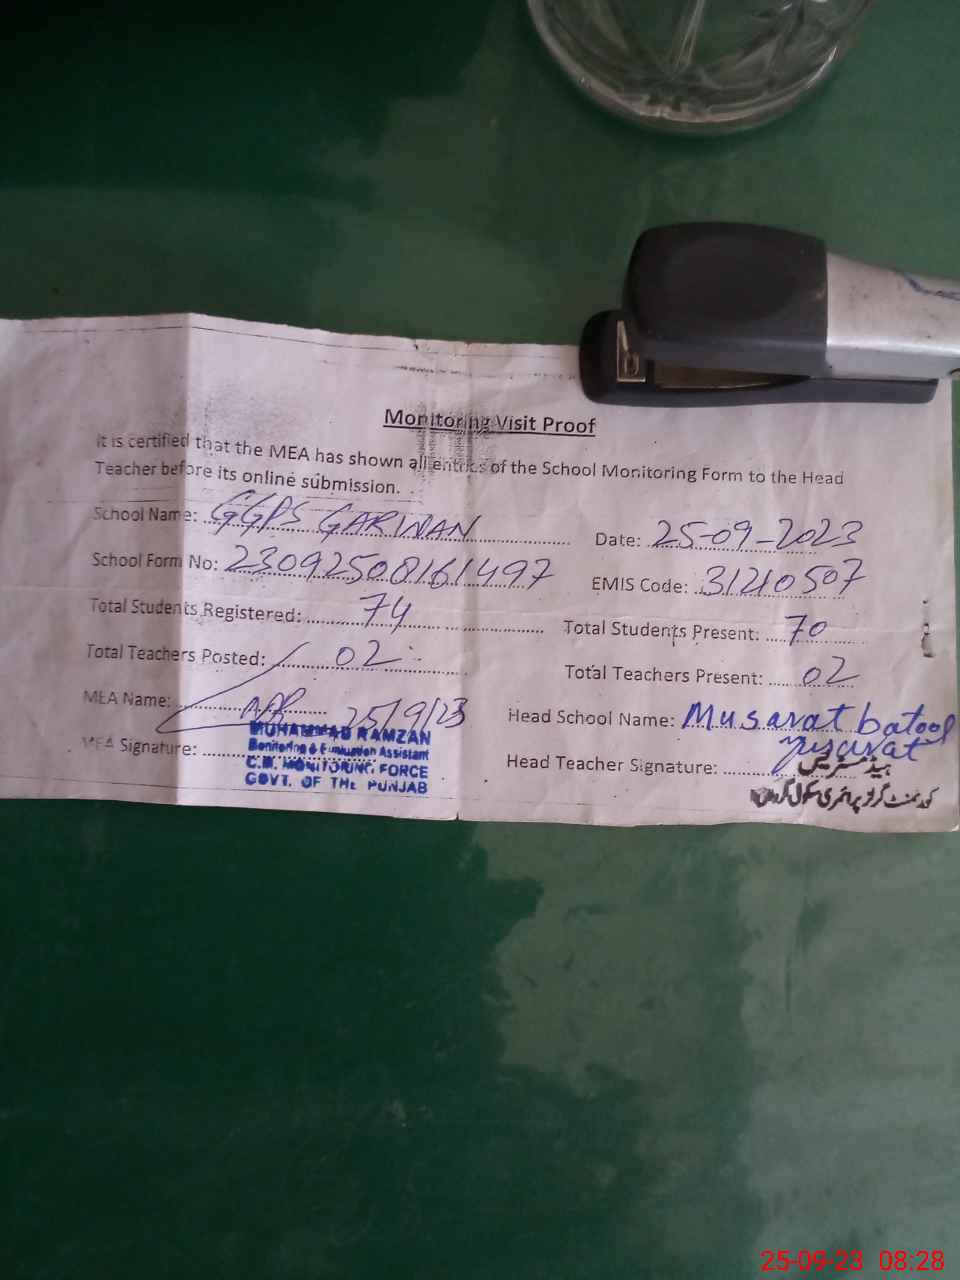 Monitoring Visit Proof
It is certified that the MEA has shown all entries of the School Monitoring Form to the Head
Teacher before its online submission.
School Name: GGPS GARWAN Date: 25-09-2023
School Form No: 23092508161497 EMIS Code: 31210507
Total Students Registered: 74 Total Students Present: 70
Total Teachers Posted: 02 Total Teachers Present: 02
MEA Name: 25/9/23 Head School Name: Musarat batool
MEA Signature: Head Teacher Signature: Musarat
MUHAMMAD RAMZAN
Monitoring & Evaluation Assistant
C.M. MONITORING FORCE
GOVT. OF THE PUNJAB
ہیڈ مسٹریس
گورنمنٹ گرلز پرائمری سکول
25-09-23 08:28